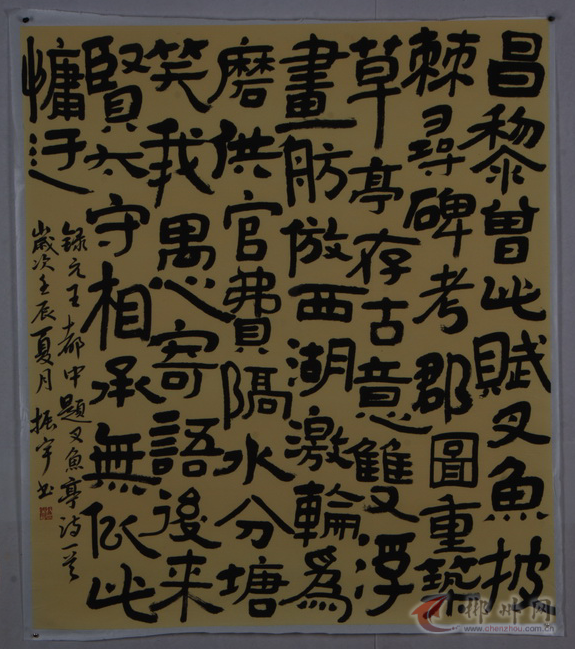 昌黎曾此賦叉魚披
棘尋碑考郡圖重築
草亭存古意雙浮
畫舫倣西湖激輪爲
磨供官費隔水分塘
笑我愚心寄語後来
賢太守相承無似此
慵迂
錄元王都中題叉魚亭詩一首
歲次壬辰夏月振宇书
郴州网
www.chenzhou.com.cn